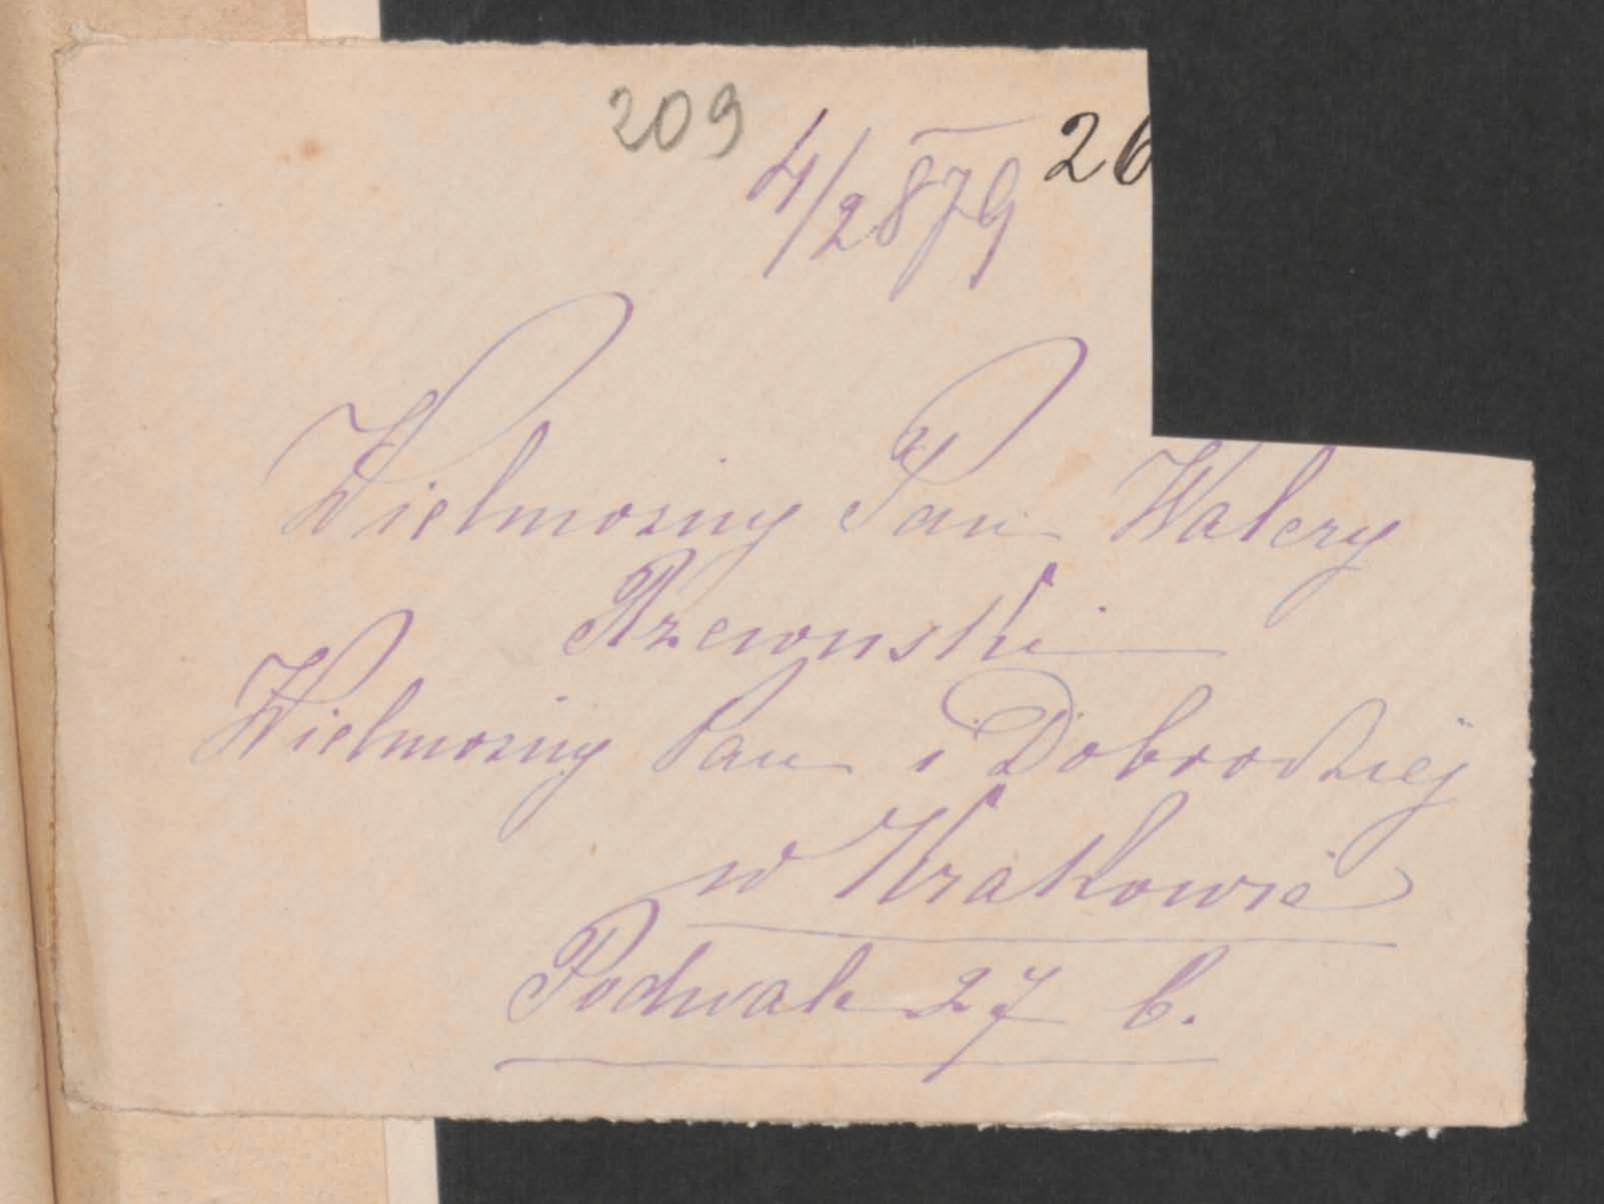 209
4/2 879
26
Wielmozny Pan Walery
Rzewuski
Wielmozny Pan i Dobrodziej
w Krakowie
Podwale 27 b.